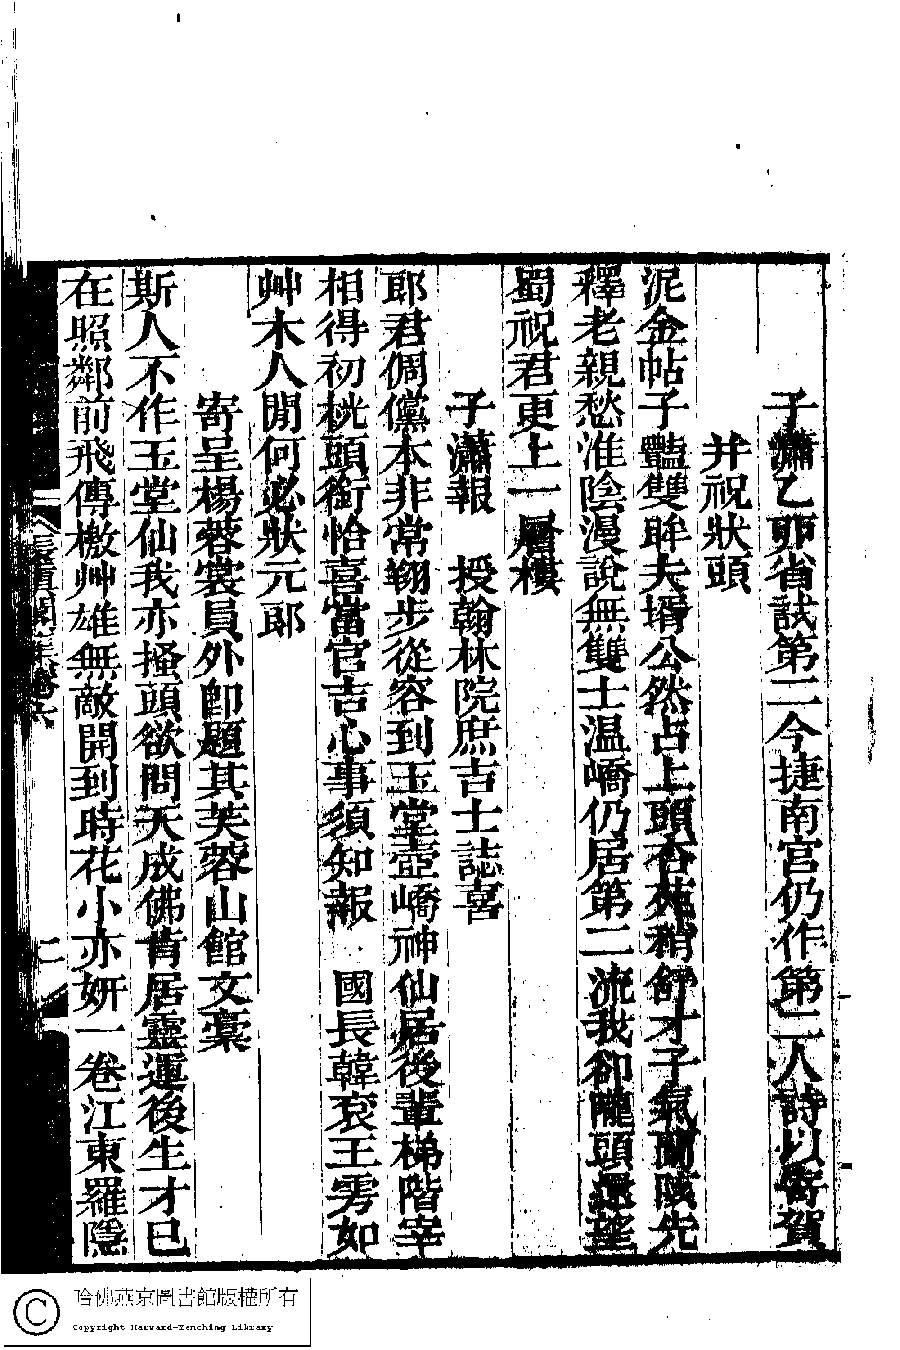 子瀟乙卯省試第二今捷南宮仍作第二人詩以寄賀
并祝狀頭
泥金帖子豔雙眸夫壻公然占上頭杏苑稍舒才子氣蘭陔先
釋老親愁淮陰漫說無雙士温嶠仍居第二流我卻隴頭還望
蜀祝君更上一層樓
子瀟報 授翰林院庶吉士誌喜
郎君倜儻本非常翔步從容到玉堂壺嶠神仙居後輩梯階宰
相得初桄頭銜恰喜當官吉心事須知報 國長韓袞王雱如
艸木人閒何必狀元郎
寄呈楊蓉裳員外卽題其芙蓉山館文稾
斯人不作玉堂仙我亦搔頭欲問天成佛肯居靈運後生才已
在照鄰前飛傳檄艸雄無敵開到時花小亦妍一卷江東羅隱
長眞閣集卷六
二
哈佛燕京圖書館版權所有
Copyright Harvard-Yenching Library